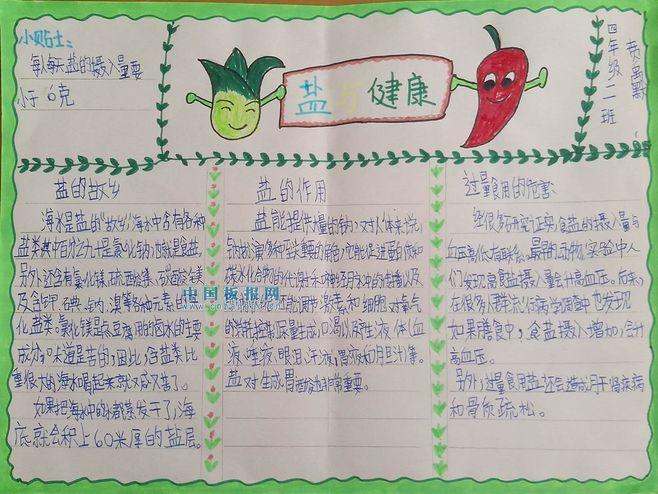 小贴士:
每人每天盐的摄入量要
小于6克
盐与健康
四年级二班
盐的故乡
海水是盐的“故乡”海水中含有各种
盐类其中百分之九十是氯化钠,也就是食盐。
另外还含有氯化镁、硫酸镁、碳酸镁
及含钾、碘、钠、溴等各种元素的其他
化盐类。氯化镁是点豆腐用的卤水的主要
成分,味道是苦的,因此,含盐类比
重很大的海水喝起来就又咸又苦了。
如果把海水中的水都蒸发干了,海
底就会积上60米厚的盐层。
盐的作用
盐能提供大量的钠,对人体来说,
钠扮演多种至关重要的角色,它能促进蛋白质和
碳水化合物的代谢和神经
能调节激素和细胞对氧气
的消耗控制尿量生成,口渴以及产生液体(血
液、唾液、眼泪、汗液,胃液和胆汁)等。
盐对生成胃酸也非常重要。
过量食用的危害:
经很多研究证实,食盐的摄入量与
血压高低有联系。最早的动物实验中人
们发现高食盐摄入量会升高血压。后来,
在很多人群流行病学调查中也发现
如果膳食中,食盐摄入增加,会升
高血压。
另外,过量食用盐还会造成胃肾疾病
和骨质疏松。
中国板报网